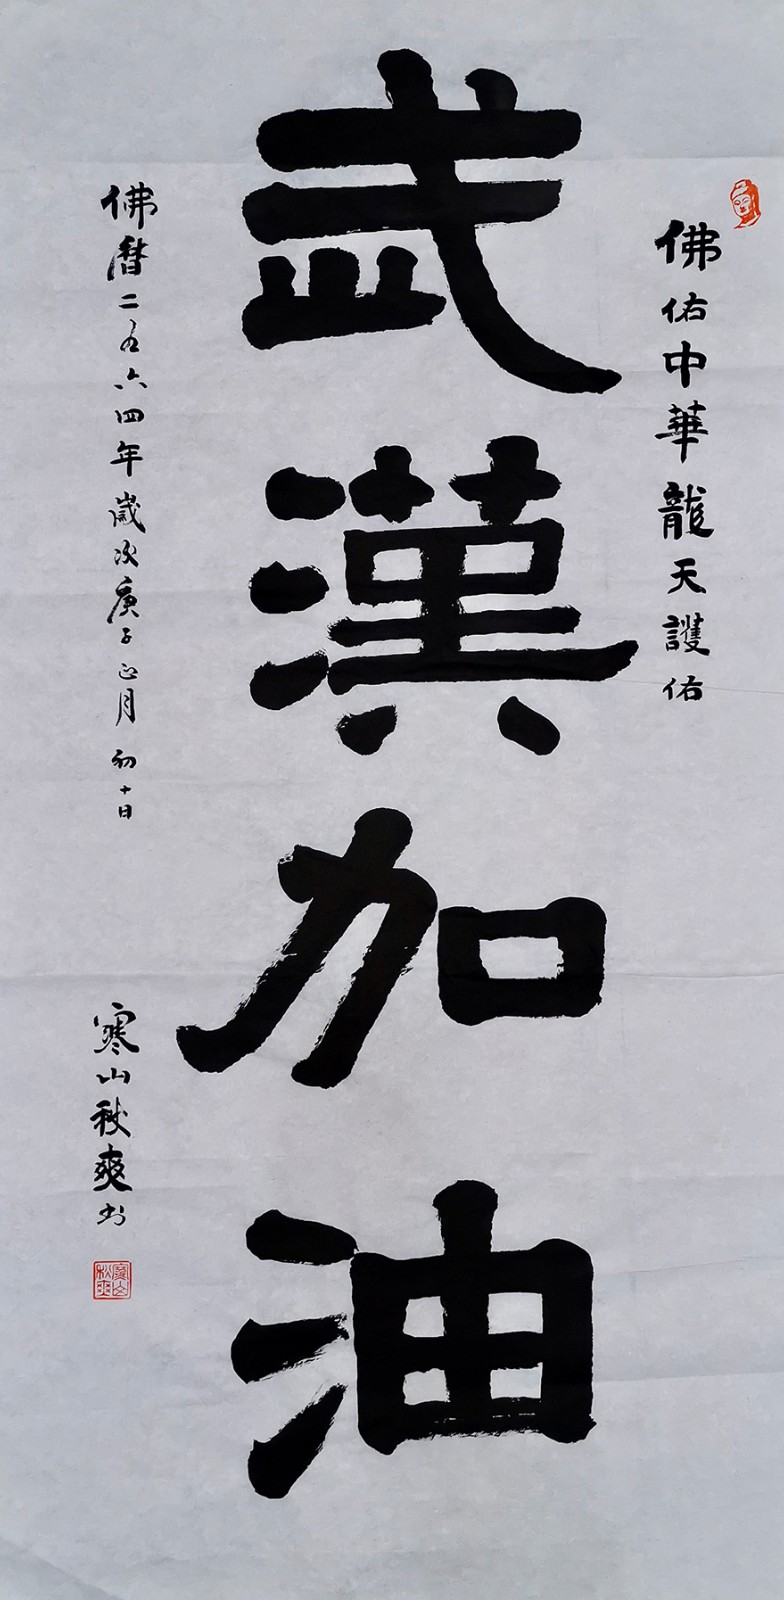 佛佑中華龍天護佑
武漢加油
佛曆二五六四年歲次庚子正月初十日
寒山秋爽书
寒山秋爽